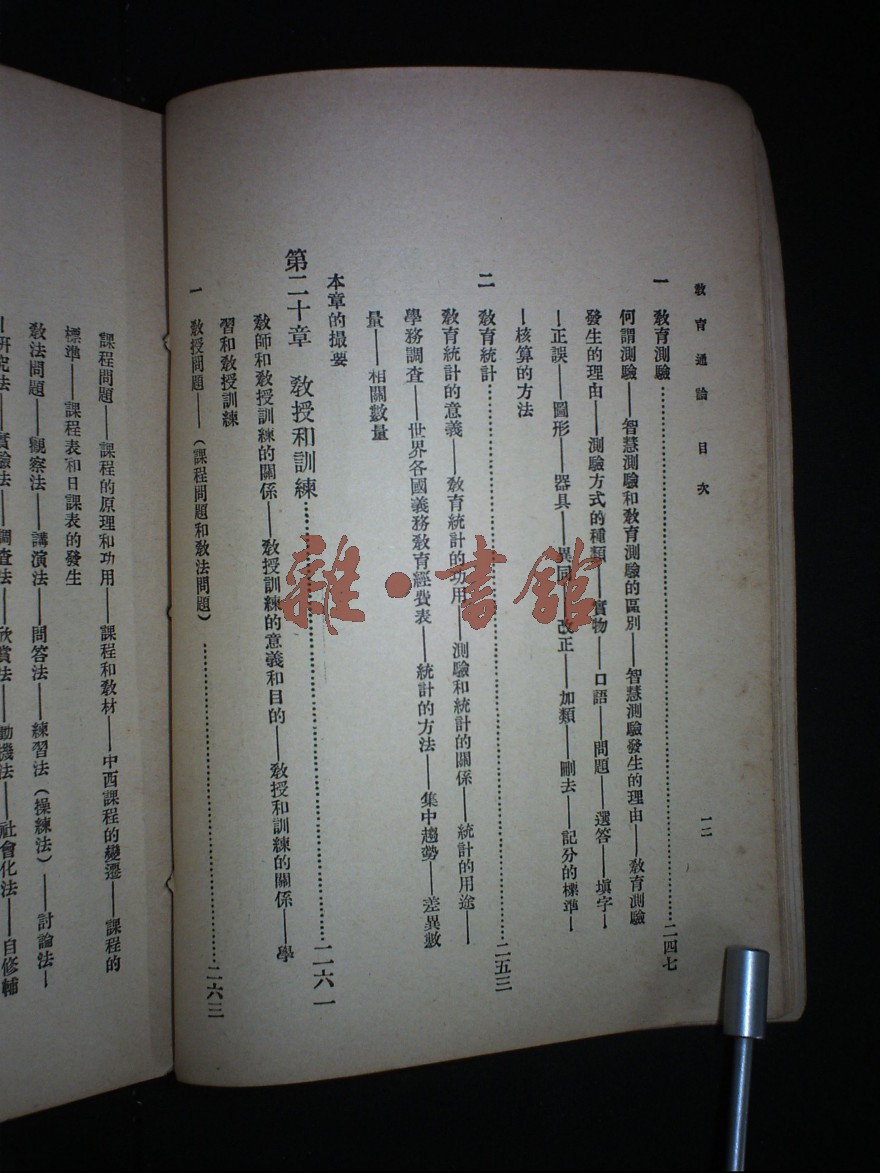 敎育通論　目次
一二
一　敎育測驗……二四七
何謂測驗——智慧測驗和敎育測驗的區別——智慧測驗發生的理由——敎育測驗
發生的理由——測驗方式的種類——實物——口語——問題——選答——塡字—
—正誤——圖形——器具——異同——改正——加類——刪去——記分的標準—
—核算的方法
二　敎育統計……二五三
敎育統計的意義——敎育統計的功用——測驗和統計的關係——統計的用途——
學務調查——世界各國義務敎育經費表——統計的方法——集中趨勢——差異數
量——相關數量
本章的撮要
第二十章　敎授和訓練……二六一
敎師和敎授訓練的關係——敎授訓練的意義和目的——敎授和訓練的關係——學
習和敎授訓練
一　敎授問題——（課程問題和敎法問題）……二六三
課程問題——課程的原理和功用——課程和敎材——中西課程的變遷——課程的
標準——課程表和日課表的發生
敎法問題——觀察法——講演法——問答法——練習法（操練法）——討論法—
—研究法——實驗法——調查法——欣賞法——動機法——社會化法——自修輔
雜·書館